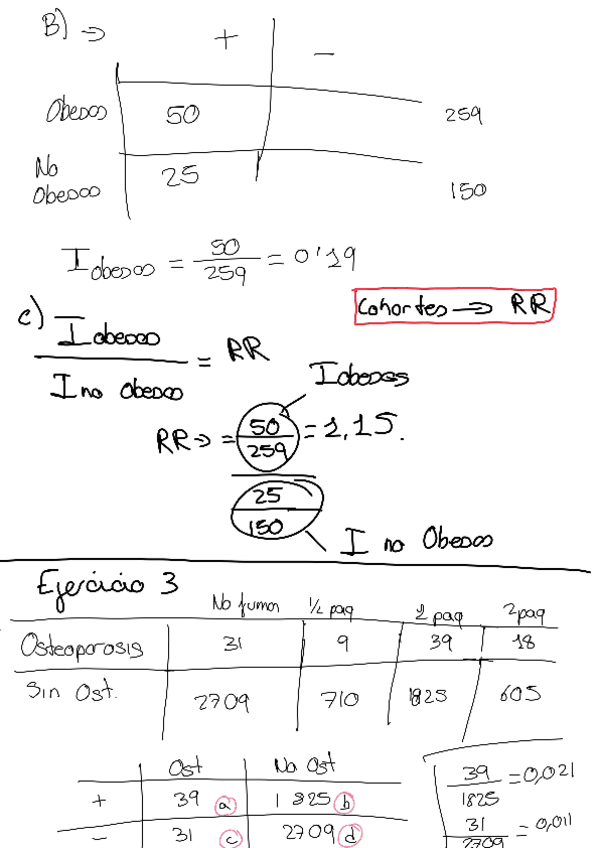 B) ⇒ + −
Obesos 50 259
No
Obesos 25 150
I obesos = 50/259 = 0'19
Cohortes → RR
c) I obesos / I no obesos = RR
I obesos
RR → = 50/259 = 1,15.
25/150
I no Obesos
Ejercicio 3
No fuman 1/2 paq 1 paq 2 paq
Osteoporosis 31 9 39 18
Sin Ost. 2709 710 1825 605
Ost No Ost
+ 39 (a) 1825 (b)
− 31 (c) 2709 (d)
39/1825 = 0,021
31/2709 = 0,011